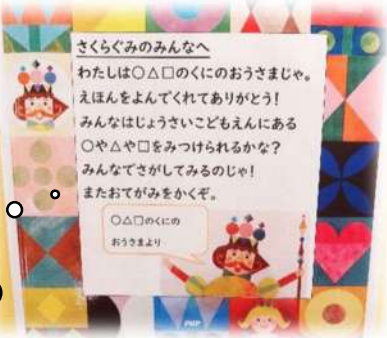 さくらぐみのみんなへ
わたしは○△□のくにのおうさまじゃ。
えほんをよんでくれてありがとう!
みんなはじょうさいこどもえんにある
○や△や□をみつけられるかな?
みんなでさがしてみるのじゃ!
またおてがみをかくぞ。
○△□のくにの
おうさまより
PHP